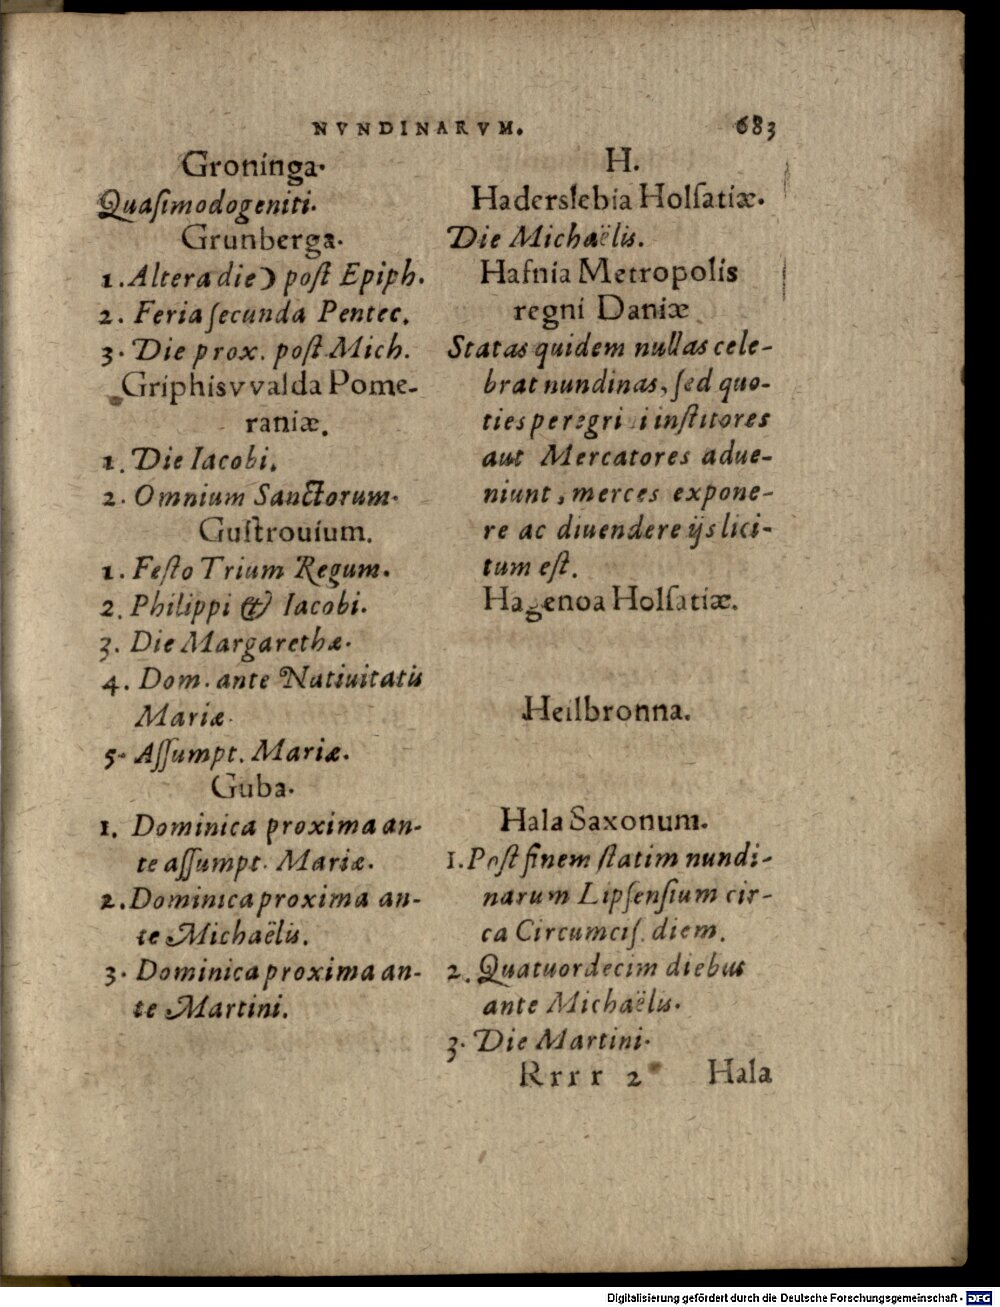 NVNDINARVM. 683
Groninga.
Quaſimodogeniti.
Grunberga.
1. Altera die ☽ poſt Epiph.
2. Feria ſecunda Pentec.
3. Die prox. poſt Mich.
Griphisvvalda Pome-
raniæ.
1. Die Iacobi.
2. Omnium Sanctorum.
Guſtrouium.
1. Feſto Trium Regum.
2. Philippi & Iacobi.
3. Die Margarethæ.
4. Dom. ante Natiuitatis
Mariæ.
5. Aſſumpt. Mariæ.
Guba.
1. Dominica proxima an-
te aſſumpt. Mariæ.
2. Dominica proxima an-
te Michaëlis.
3. Dominica proxima an-
te Martini.
H.
Haderslebia Holſatiæ.
Die Michaëlis.
Hafnia Metropolis
regni Daniæ
Statas quidem nullas cele-
brat nundinas, ſed quo-
ties peregri i inſtitores
aut Mercatores adue-
niunt, merces expone-
re ac diuendere ijs lici-
tum eſt.
Hagenoa Holſatiæ.
Heilbronna.
Hala Saxonum.
1. Poſt finem ſtatim nundi-
narum Lipſenſium cir-
ca Circumciſ. diem.
2. Quatuordecim diebus
ante Michaëlis.
3. Die Martini.
Rrrr 2 Hala
Digitalisierung gefördert durch die Deutsche Forschungsgemeinschaft - DFG